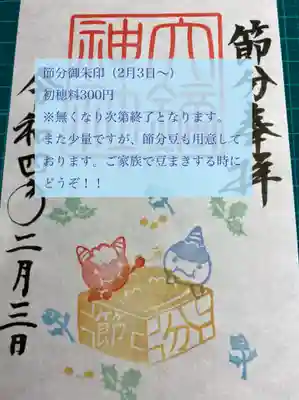 節分奉拝
節分御朱印（2月3日～）
初穂料300円
※無くなり次第終了となります。
また少量ですが、節分豆も用意して
おります。ご家族で豆まきする時に
どうぞ！！
令和四年二月三日
節分